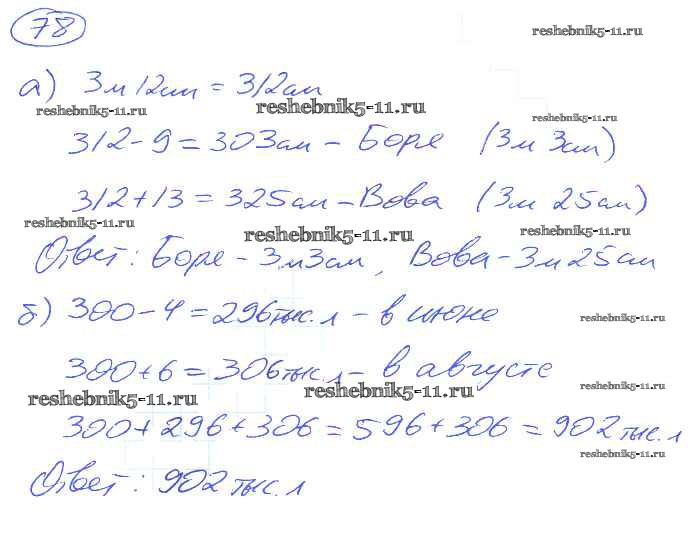 78
reshebnik5-11.ru
а) 3м 12см = 312см
reshebnik5-11.ru
reshebnik5-11.ru
reshebnik5-11.ru
312 - 9 = 303см - Боре (3м 3см)
312 + 13 = 325см - Вова (3м 25см)
reshebnik5-11.ru
reshebnik5-11.ru
reshebnik5-11.ru
Ответ: Боре - 3м 3см, Вова - 3м 25см
б) 300 - 4 = 296тыс. л - в июне
reshebnik5-11.ru
300 + 6 = 306тыс. л - в августе
reshebnik5-11.ru
reshebnik5-11.ru
reshebnik5-11.ru
300 + 296 + 306 = 596 + 306 = 902тыс. л
reshebnik5-11.ru
Ответ: 902тыс. л